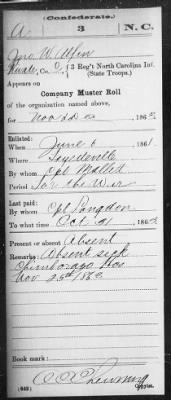 (Confederate.)
A 3 N.C.
Jno. W. Allin
Private, Co. C, 3 Reg't North Carolina Inf.
(State Troops.)
Appears on
Company Muster Roll
of the organization named above,
for Nov & Dec, 186
Enlisted:
When June 6, 1861.
Where Fayetteville
By whom Cpt Mallett
Period For the War
Last paid:
By whom Cpt Langdon
To what time Oct 31, 1862
Present or absent Absent
Remarks: Absent sick
Chimborazo Hos
Nov 25th 1862
Book mark:
(642) Copyist.